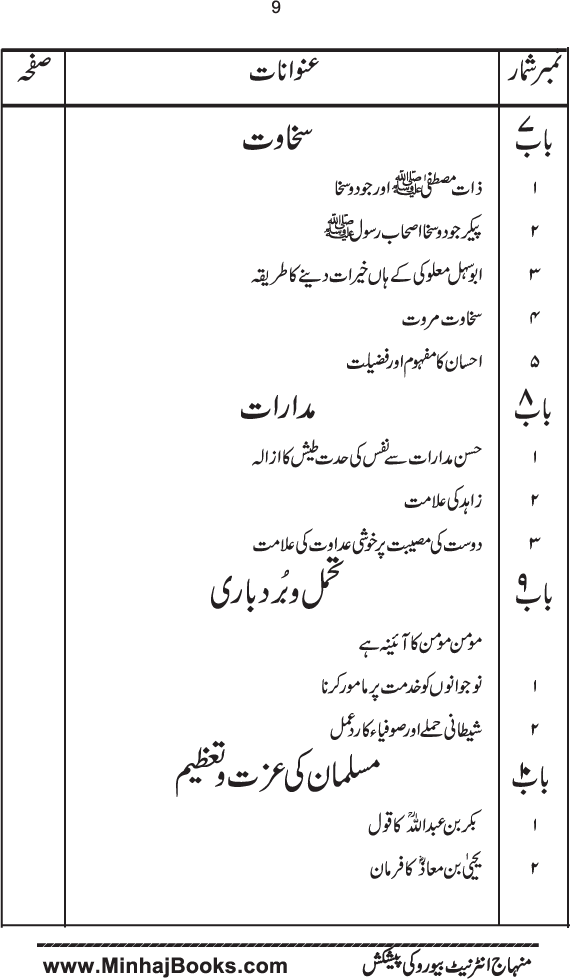 9
نمبر شمار عنوانات صفحہ
باب ۷ سخاوت
۱ ذات مصطفیٰ ﷺ اور جود و سخا
۲ پیکر جود و سخا اصحاب رسول ﷺ
۳ ابوسہل معلوکی کے ہاں خیرات دینے کا طریقہ
۴ سخاوت مروت
۵ احسان کا مفہوم اور فضیلت
باب ۸ مدارات
۱ حسن مدارات سے نفس کی حدت طیش کا ازالہ
۲ زاہد کی علامت
۳ دوست کی مصیبت پر خوشی عداوت کی علامت
باب ۹ تحمل و بُردباری
مومن مومن کا آئینہ ہے
۱ نوجوانوں کو خدمت پر مامور کرنا
۲ شیطانی حملے اور صوفیاء کا ردعمل
باب ۱۰ مسلمان کی عزت و تعظیم
۱ بکر بن عبداللہؒ کا قول
۲ یحییٰ بن معاذؒ کا فرمان
منہاج انٹرنیٹ بیورو کی پیشکش www.MinhajBooks.com